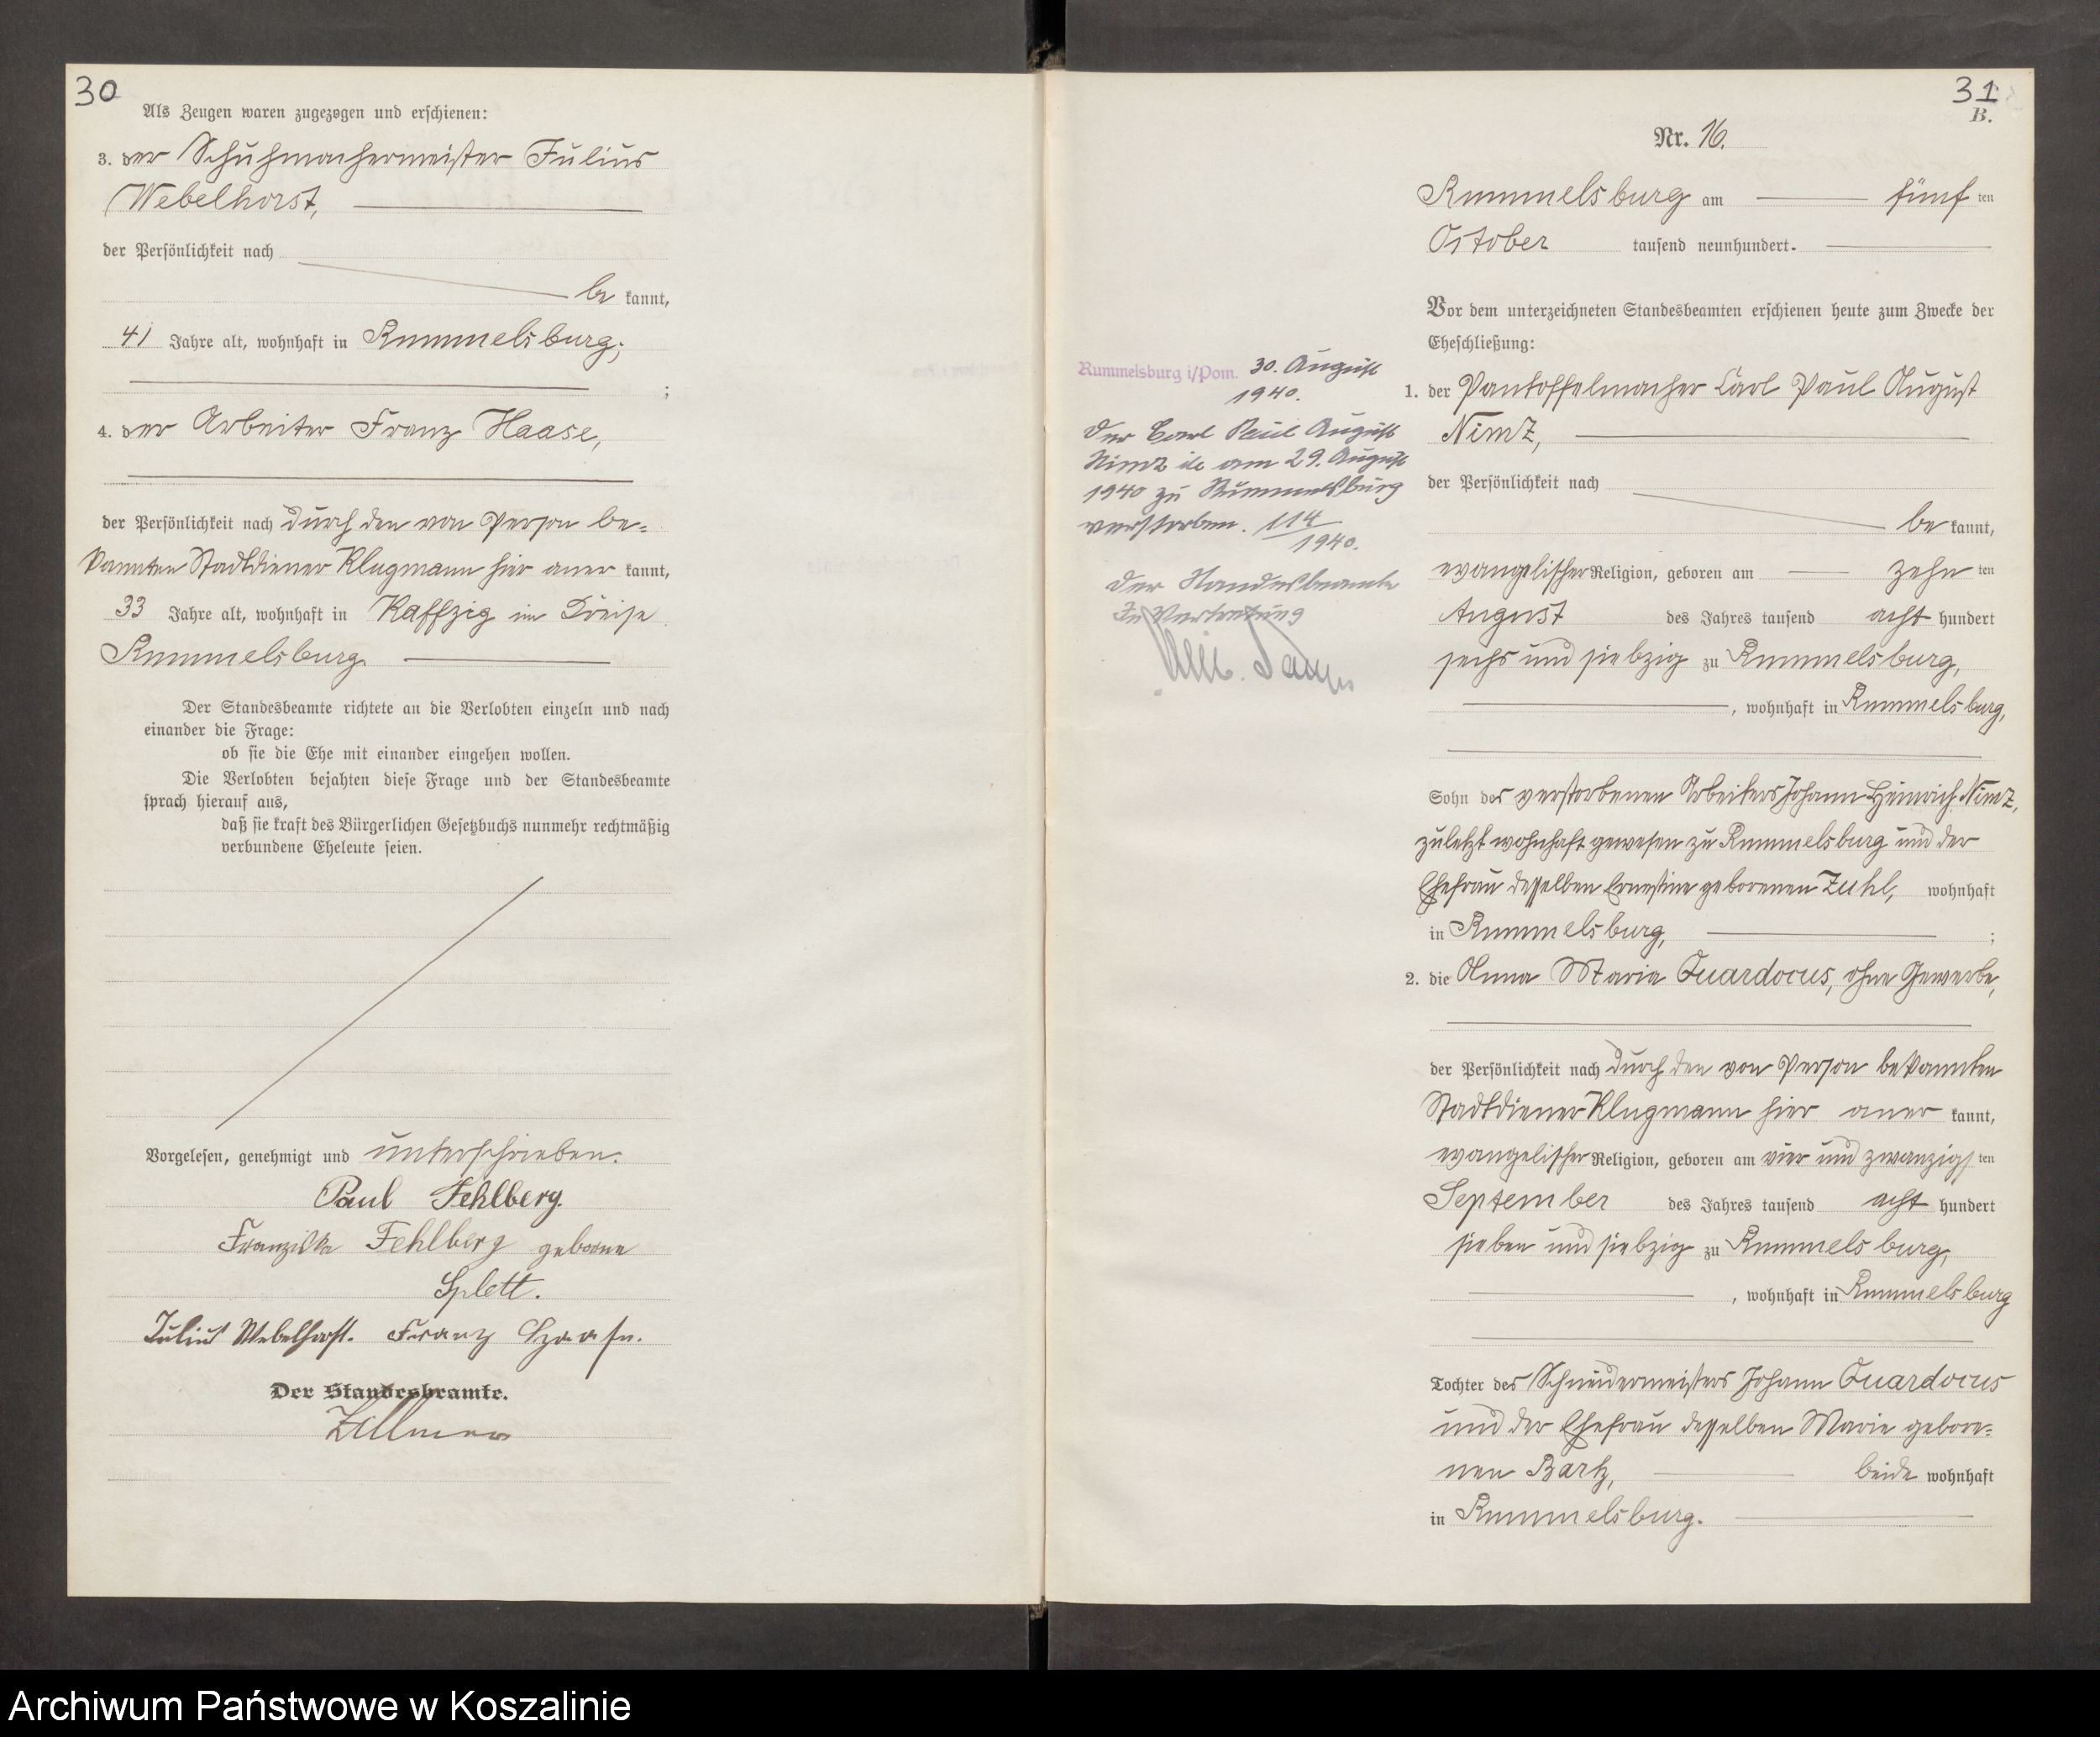 30
Als Zeugen waren zugezogen und erschienen:
3. der Schuhmachermeister Julius
Webelhorst,
der Persönlichkeit nach
be kannt,
41 Jahre alt, wohnhaft in Rummelsburg;
;
4. der Arbeiter Franz Haase,
der Persönlichkeit nach durch den von Person be-
kannten Stadtdiener Klugmann hier aner kannt,
33 Jahre alt, wohnhaft in Kaffzig im Kreise
Rummelsburg
Der Standesbeamte richtete an die Verlobten einzeln und nach
einander die Frage:
ob sie die Ehe mit einander eingehen wollen.
Die Verlobten bejahten diese Frage und der Standesbeamte
sprach hierauf aus,
daß sie kraft des Bürgerlichen Gesetzbuchs nunmehr rechtmäßig
verbundene Eheleute seien.
Vorgelesen, genehmigt und unterschrieben.
Paul Fehlberg.
Franziska Fehlberg geborne
Splett.
Julius Webelhorst. Franz Haase.
Der Standesbeamte.
Zillmer
31
B.
Nr. 16.
Rummelsburg am fünf ten
October tausend neunhundert.
Vor dem unterzeichneten Standesbeamten erschienen heute zum Zwecke der
Eheschließung:
1. der Pantoffelmacher Carl Paul August
Nimz,
der Persönlichkeit nach
be kannt,
evangelischer Religion, geboren am zehn ten
August des Jahres tausend acht hundert
sechs und siebzig zu Rummelsburg,
, wohnhaft in Rummelsburg,
Sohn des verstorbenen Arbeiters Johann Heinrich Nimz,
zuletzt wohnhaft gewesen zu Rummelsburg und der
Ehefrau desselben Ernestine geborenen Zuhl, wohnhaft
in Rummelsburg, ;
2. die Anna Maria Quardocus, ohne Gewerbe,
der Persönlichkeit nach durch den von Person bekannten
Stadtdiener Klugmann hier aner kannt,
evangelischer Religion, geboren am vier und zwanzigs ten
September des Jahres tausend acht hundert
sieben und siebzig zu Rummelsburg,
, wohnhaft in Rummelsburg
Tochter des Schneidermeisters Johann Quardocus
und der Ehefrau desselben Marie gebore-
nen Bartz, beide wohnhaft
in Rummelsburg.
Rummelsburg i/Pom. 30. August
1940.
Der Carl Paul August
Nimz ist am 29. August
1940 zu Rummelsburg
verstorben. 114/1940.
Der Standesbeamte
In Vertretung
Archiwum Państwowe w Koszalinie